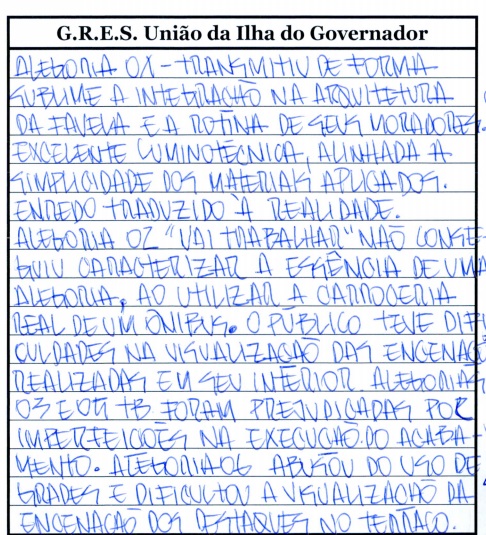 G.R.E.S. União da Ilha do Governador
ALEGORIA 01 - TRANSMITIU DE FORMA
SUBLIME A INTEGRAÇÃO NA ARQUITETURA
DA FAVELA E A ROTINA DE SEUS MORADORES.
EXCELENTE LUMINOTÉCNICA, ALINHADA A
SIMPLICIDADE DOS MATERIAIS APLICADOS.
ENREDO TRADUZIDO À REALIDADE.
ALEGORIA 02 "VAI TRABALHAR" NÃO CONSE-
GUIU CARACTERIZAR A ESSÊNCIA DE UMA
ALEGORIA, AO UTILIZAR A CARROCERIA
REAL DE UM ÔNIBUS. O PÚBLICO TEVE DIFI
CULDADES NA VISUALIZAÇÃO DAS ENCENAÇÕ
REALIZADAS EM SEU INTERIOR. ALEGORIAS
03 E 05 TB FORAM PREJUDICADAS POR
IMPERFEIÇÕES NA EXECUÇÃO DO ACABA-
MENTO. ALEGORIA 06 ABUSOU DO USO DE
GRADES E DIFICULTOU A VISUALIZAÇÃO DA
ENCENAÇÃO DOS DESTAQUES NO TERRAÇO.